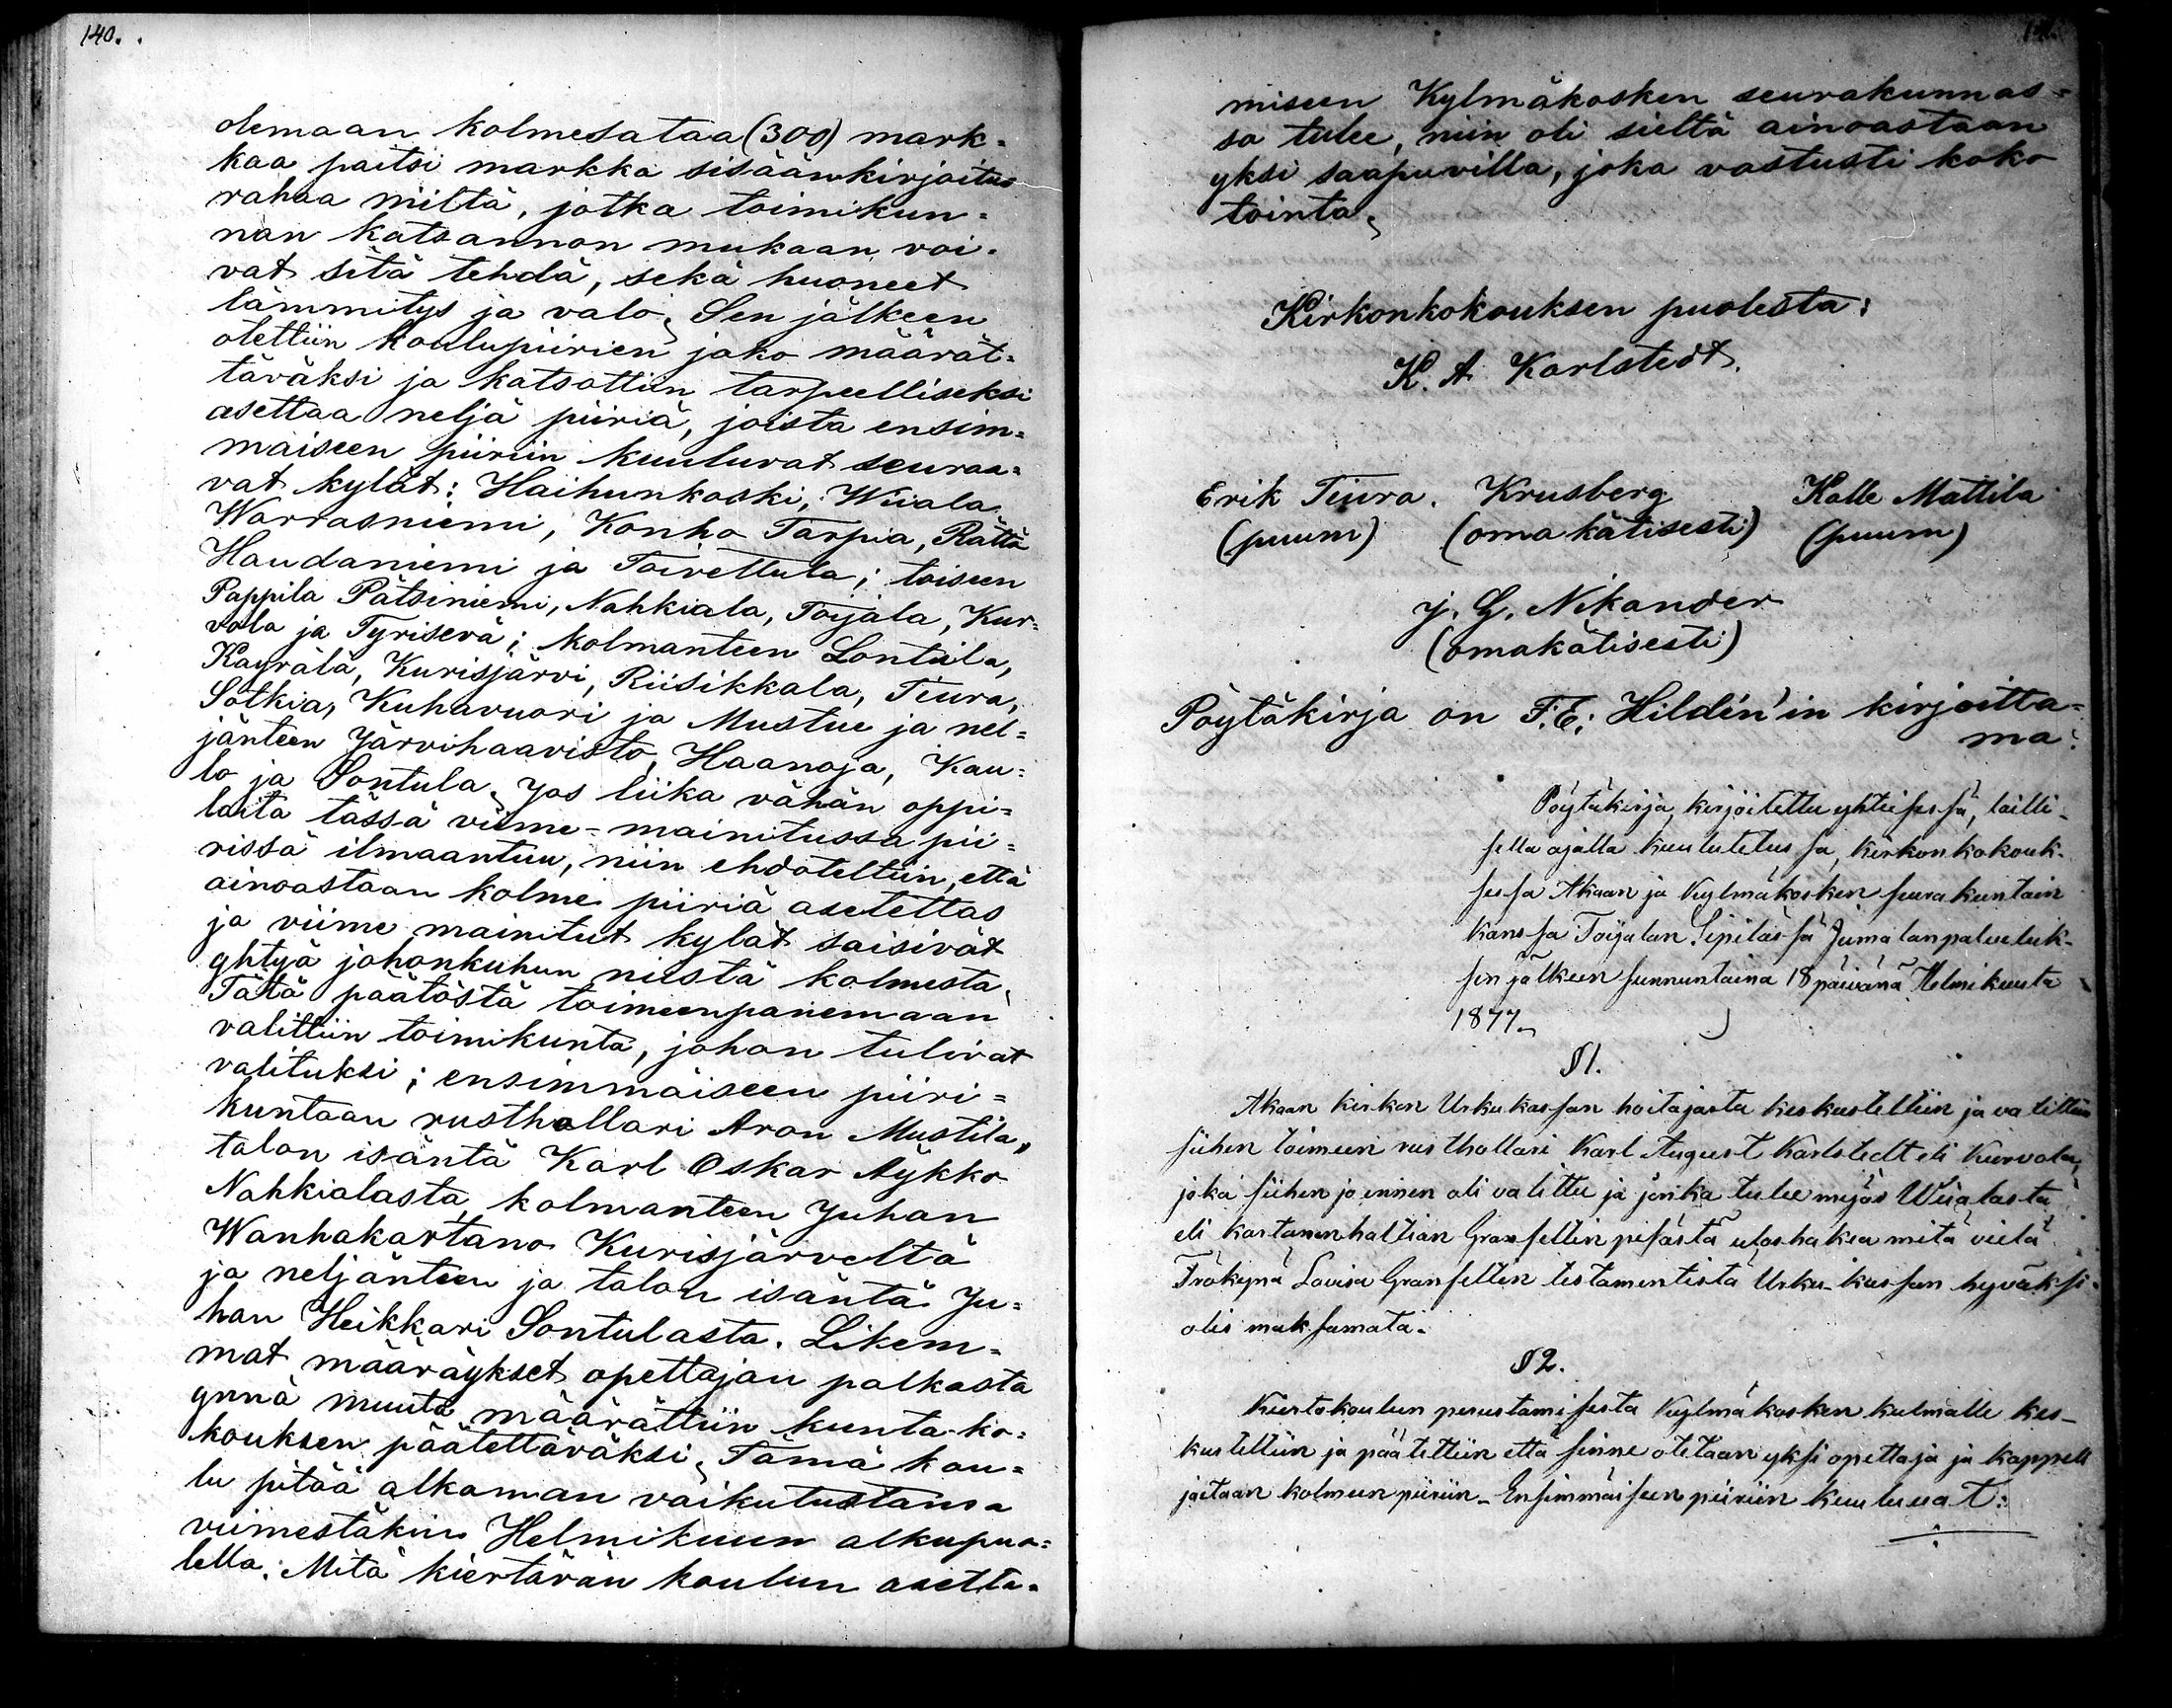 140.
olemaan kolmesataa (300) mark-
kaa paitsi markka sisäänkirjoitus
rahaa niiltä, jotka toimikun-
nan katsannon mukaan voi-
vat sitä tehdä, sekä huoneet
lämmitys ja valo. Sen jälkeen
otettiin koulupiirien jako määrät-
täväksi ja katsottiin tarpeelliseksi
asettaa neljä piiriä, joista ensim-
maiseen piiriin kuuluvat seuraa-
vat kylät: Haihunkoski, Wiiala
Warrasniemi, Konho Tarpia, Rättö
Haudaniemi ja Toivettula; toiseen
Pappila Pätsiniemi, Nahkiala, Toijala, Kur-
vola ja Tyrisevä; kolmanteen Lontiila,
Kayrälä, Kurisjärvi, Riisikkala, Tiura,
Sotkia, Kuhavuori ja Mustue ja nel-
jänteen Järvihaavisto, Haanoja, Kau-
lo ja Sontula. Jos liika vähän oppi-
laita tässä viime-mainitussa pii-
rissä ilmaantuu, niin ehdoteltiin, että
ainoastaan kolme piiriä asetettas
ja viime mainitut kylät saisivat
yhtyä johonkuhun niistä kolmesta.
Tätä päätöstä toimeenpanemaan
valittiin toimikunta, johon tulivat
valituksi; ensimmäiseen piiri-
kuntaan rusthollari Aron Mustila,
talon isäntä Karl Oskar Äykko
Nahkialasta, kolmanteen Juhan
Wanhakartano Kurisjärveltä
ja neljänteen ja talon isäntä Ju-
han Heikkari Sontulasta. Likem-
mat määräykset opettajan palkasta
ynnä muuta määrättiin kunta-ko-
kouksen päätettäväksi. Tämä kou-
lu pitää alkaman vaikutustansa
viimestäkin Helmikuun alkupuo-
lella. Mitä kiertävän koulun asetta-
miseen Kylmäkosken seurakunnas-
sa tulee, niin oli sieltä ainoastaan
yksi saapuvilla, joka vastusti koko
tointa.
Kirkonkokouksen puolesta:
K. A Karlstedt.
Erik Tiura. Krusberg Kalle Mattila
(puum) (oma kätisesti) (puum)
J. G. Nikander
(omakätisesti)
Pöytäkirja on F. E. Hildén'in kirjoitta-
ma.
Pöytäkirja, kirjoitettu yhteisessä, lailli-
sella ajalla kuulutetussa, kirkonkokouk-
sessa Akaan ja Kylmäkosken seurakuntain
kanssa Toijalan Sipilässä Jumalanpalveluk-
sen jälkeen sunnuntaina 18 päivänä Helmikuuta
1877.
§ 1.
Akaan kirkon Urkukassan hoitajasta keskusteltiin ja valittiin
siihen toimeen rusthollari Karl August Karlstedt eli Kurvola,
joka siihen jo ennen oli valittu ja jonka tulee myös Wiialasta
eli kartanonhaltian Granfeltin pesästä uloshakea mitä vielä
Frökynä Lovisa Granfeltin testamentistä Urku-kassan hyväksi
olis maksamata.
§ 2.
Kiertokoulun perustamisesta Kylmäkosken kulmalle kes-
kusteltiin ja päätettiin että sinne otetaan yksi opettaja ja kappeli
jaetaan kolmeen piiriin. Ensimmäiseen piiriin kuuluvat: